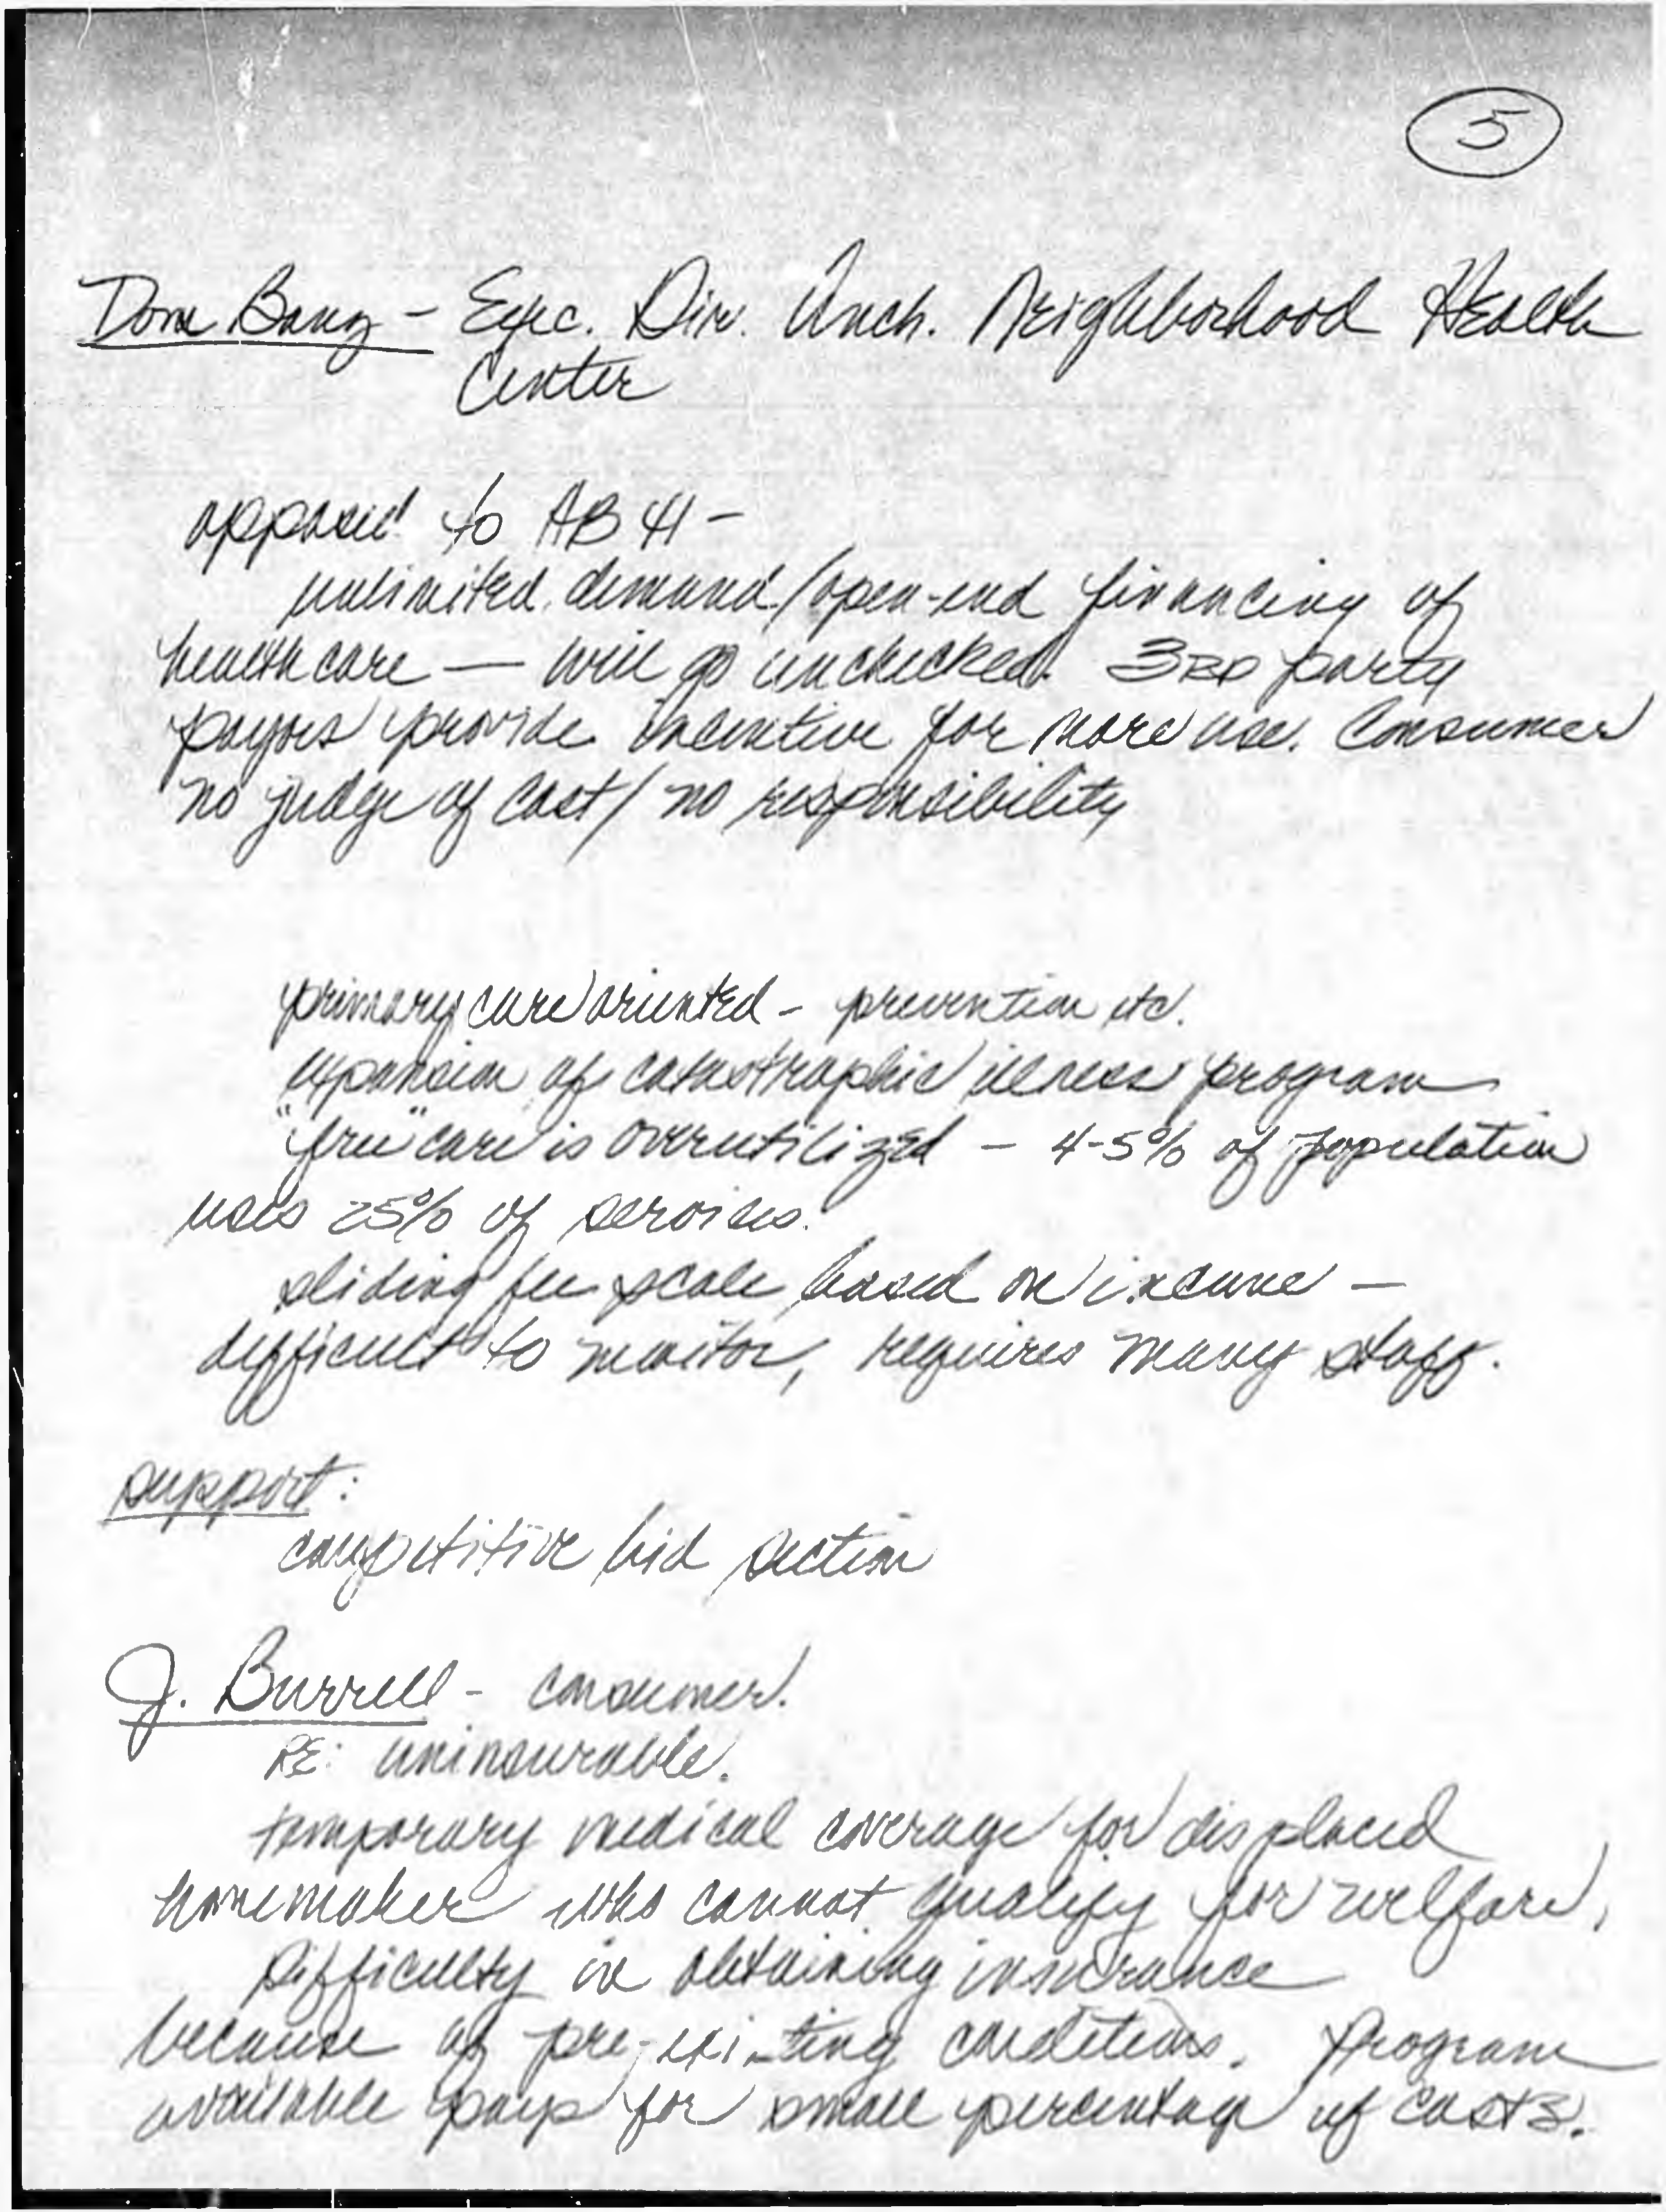 5
Dom Banz - Exec. Dir. Anch. Neighborhood Health
Center
opposed to AB 41 -
unlimited demand/open-end financing of
health care — will go unchecked. 3RD party
payors provide incentive for more use. Consumer
no judge of cost/ no responsibility
primary care oriented - prevention etc.
expansion of catastrophic illness program
"free" care is overutilized - 4-5% of population
uses 25% of services.
sliding fee scale based on income -
difficult to monitor, requires many staff.
support:
competitive bid section
J. Burrell - consumer.
RE: uninsurable.
temporary medical coverage for displaced
homemaker who cannot qualify for welfare,
difficulty in obtaining insurance
because of pre-existing conditions. Program
available pays for small percentage of costs.